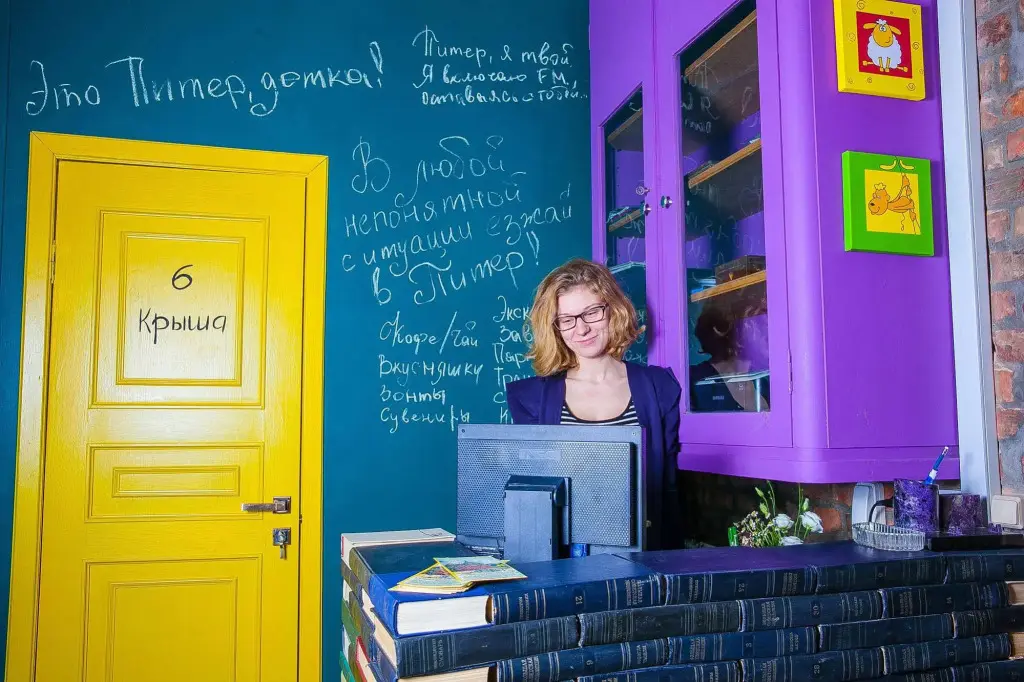 Это Питер, детка!
Питер, я твой.
Я включаю FM,
оставаясь с тобой...
В любой
непонятной
ситуации езжай
в Питер!
6
Крыша
Кофе/Чай
Вкусняшки
Зонты
Сувениры
Экск
Зав